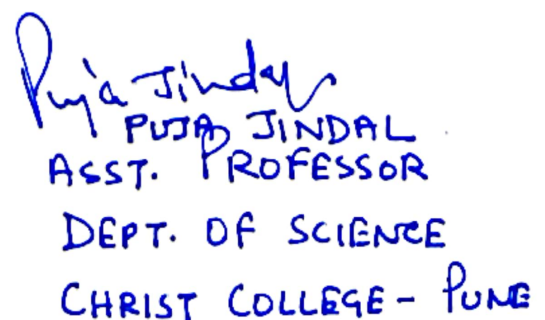 Puja Jindal
PUJA JINDAL
ASST. PROFESSOR
DEPT. OF SCIENCE
CHRIST COLLEGE - PUNE